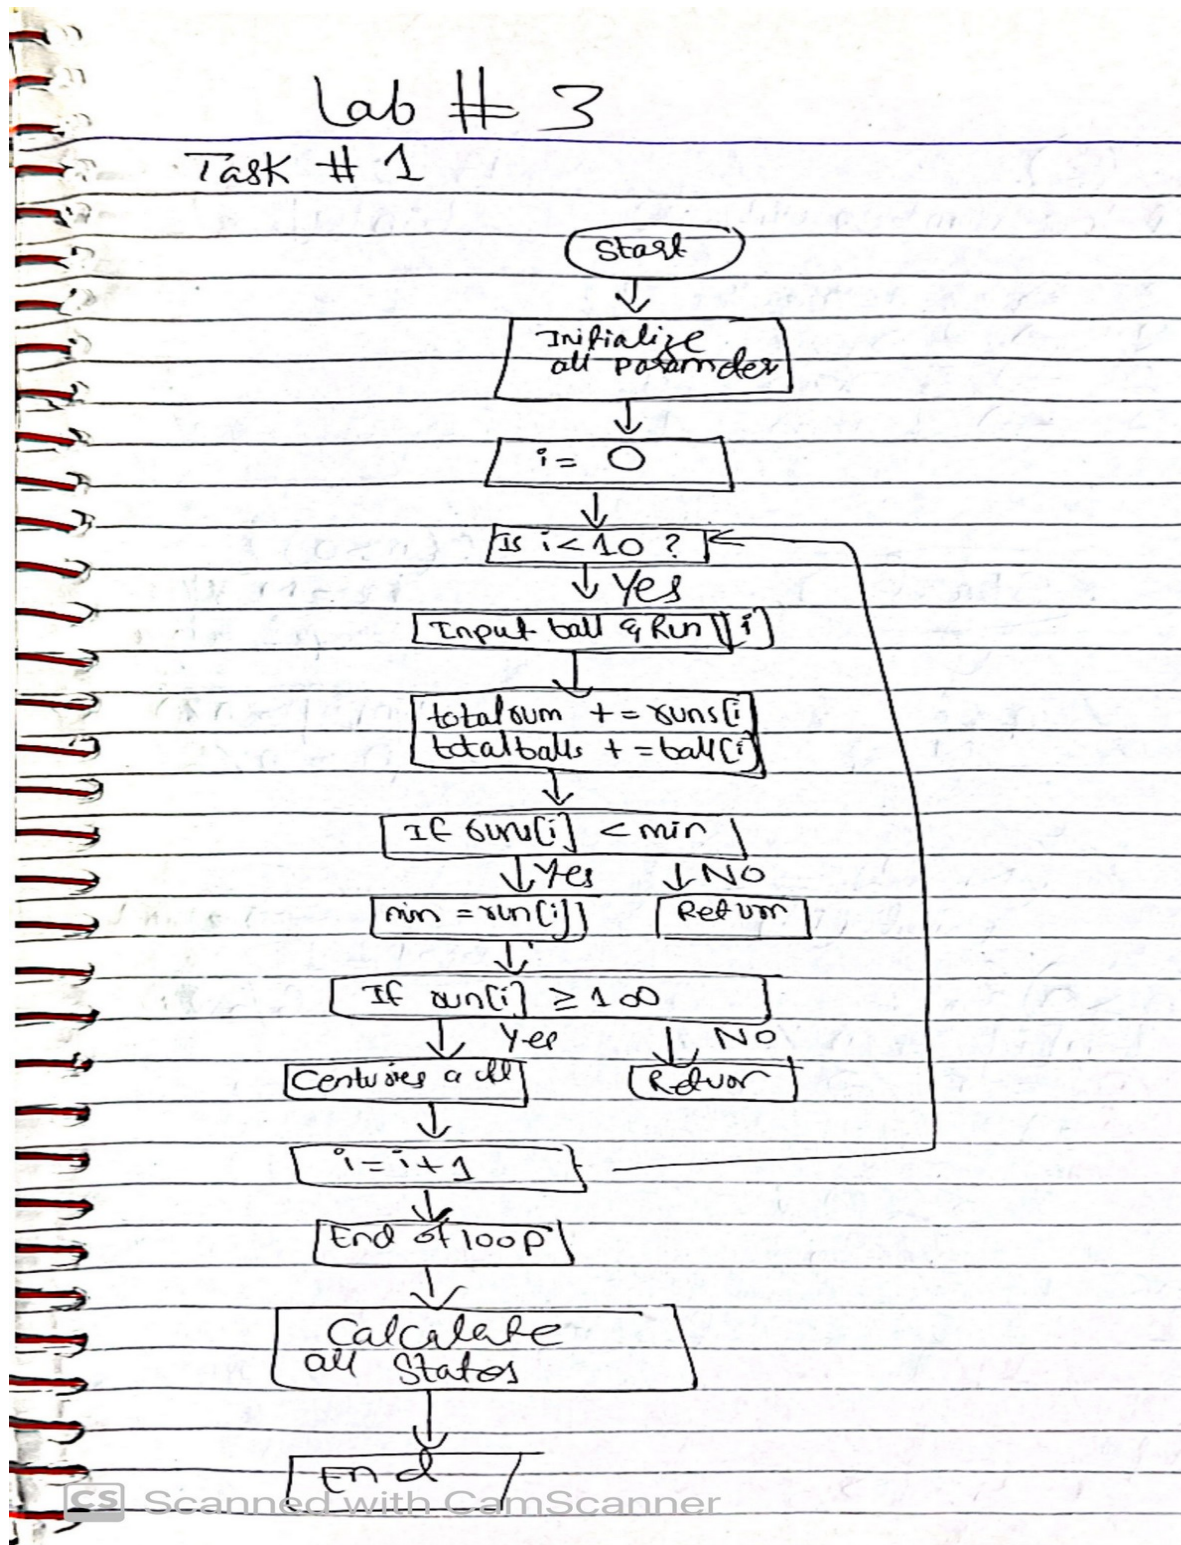 Lab # 3
Task # 1
Start
Initialize
all Paramder
i = 0
Is i < 10 ?
Yes
Input ball & Run [i]
total rum += runs[i]
total balls += ball[i]
If runs[i] < min
Yes NO
min = run[i] Return
If run[i] ≥ 100
Yes NO
Centuries
i = i + 1
End of loop
Calculate
all States
End
CS Scanned with CamScanner